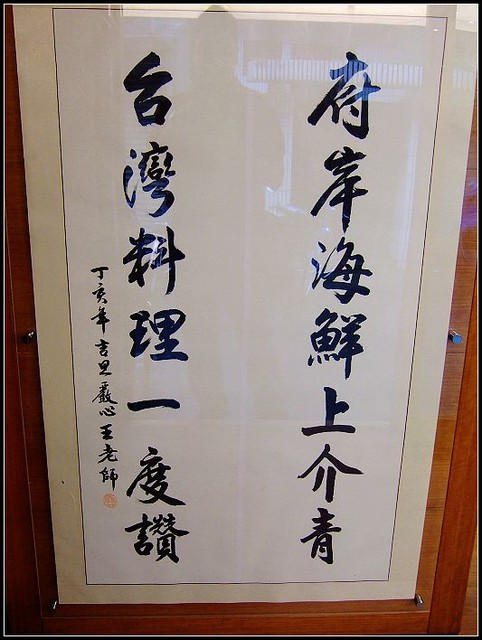 府岸海鮮上介青
台灣料理一度讚
丁亥年吉旦嚴心王老師